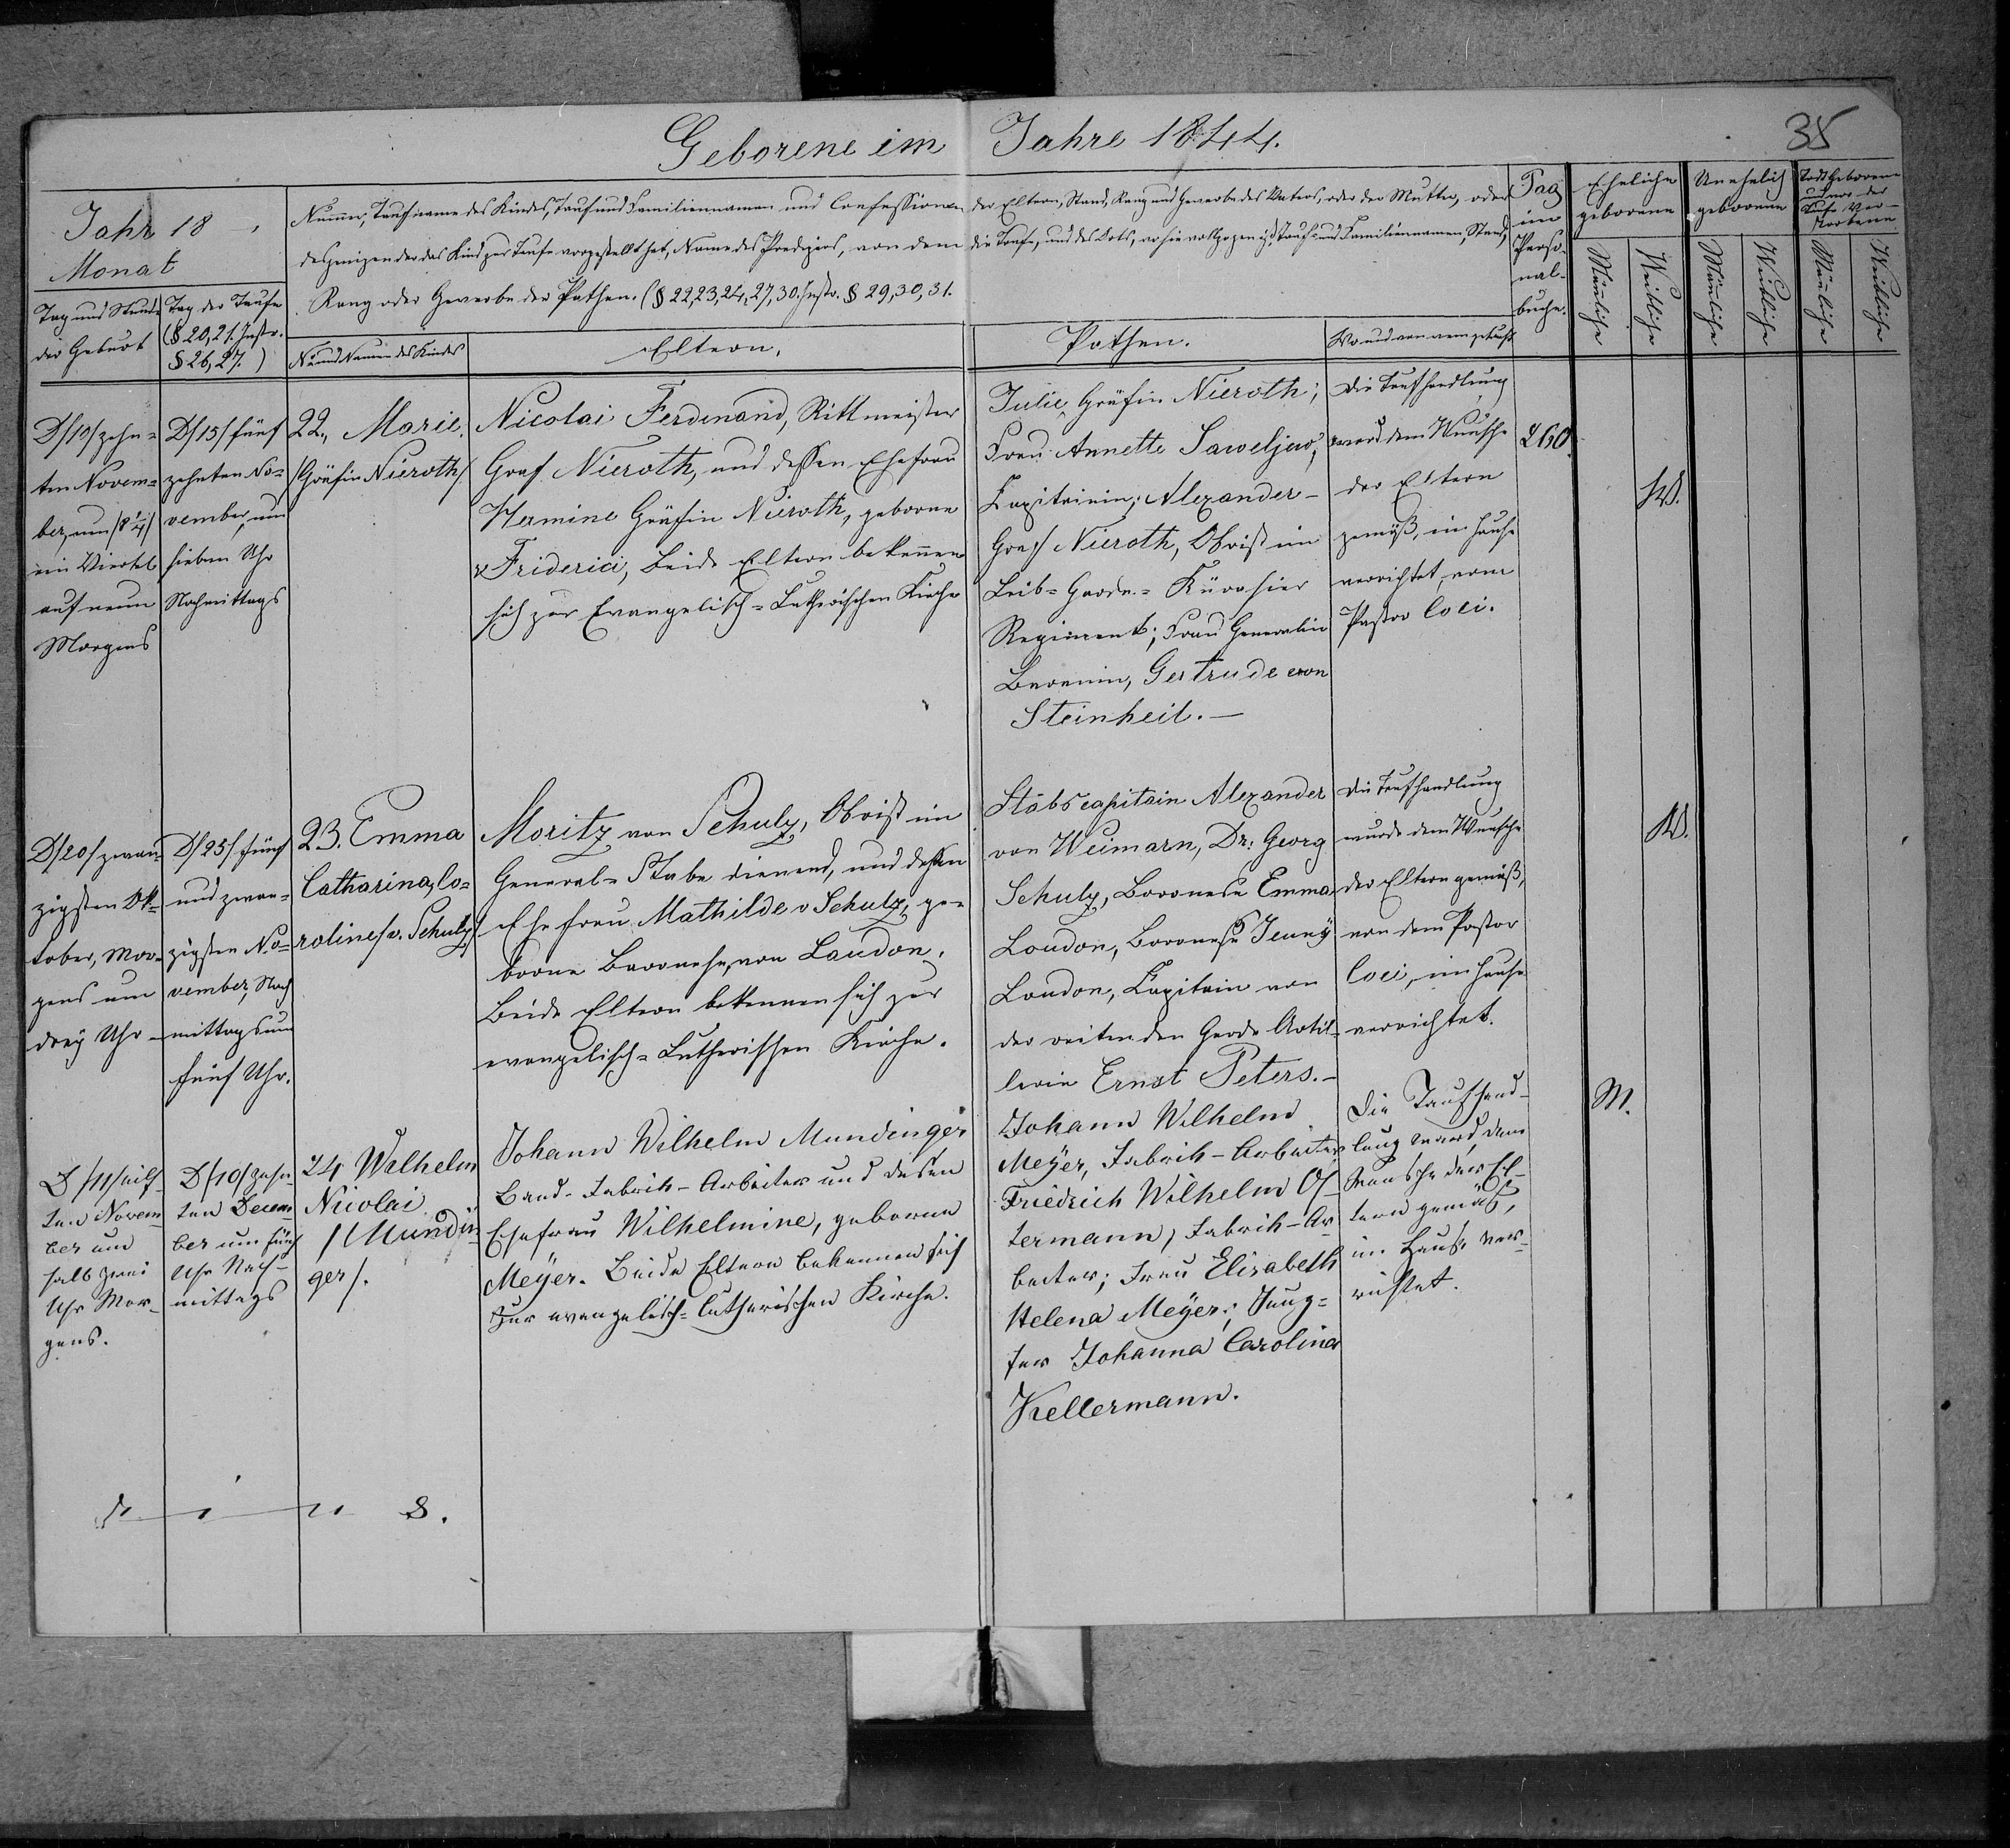 Geborene im Jahre 1844.
35
Jahr 18
Monat
Tag und Stunde
der Geburt
Tag der Taufe
(§ 20, 21. Instr.
§ 26, 27.)
Numer, Taufname des Kindes, Tauf und Familiennamen und Confessionen der Eltern, Stand, Rang und Gewerbe des Vaters, oder der Mutter, oder
desjenigen der das Kind zur Taufe vorgestellt hat, Name des Predigers, von dem die Taufe, und des Orts, wo sie vollzogen ist, Tauf- und Familiennamen, Stand,
Rang oder Gewerbe der Pathen. (§ 22, 23, 24, 27, 30. Instr. § 29, 30, 31.
No und Namen des Kindes
Eltern.
Pathen.
Wo und von wem getauft
Pag
im
Perso-
nal-
buche.
Eheliche
geborene
Unehelich
geborene
Todt Geborene
und vor der
Taufe Ver-
storbene
Männliche
Weibliche
Männliche
Weibliche
Männliche
Weibliche
D/10/zehn-
ten Novem-
ber, um /8¼/
ein Viertel
auf neun
Morgens
D/15/fünf
zehnten No-
vember, um
sieben Uhr
Nachmittags
22., Marie.
/Gräfin Nieroth/
Nicolai Ferdinand, Rittmeister
Graf Nieroth, und dessen Ehefrau
Hermine Gräfin Nieroth, geborne
v Friderici, Beide Eltern bekennen
sich zur Evangelisch-Lutherischen Kirche
Julie, Gräfin Nieroth;
Frau Annette Saweljew,
Kapitainin; Alexander-
Graf Nieroth, Obrist im
Leib-Garde-Kürassier
Regiment; Frau Generalin
Baronin, Gertrude von
Steinheil.-
Die Taufhandlung
ward dem Wunsche
der Eltern
gemäß, im Hause
verrichtet, vom
Pastor loci.
260.
W.
D/20/zwan-
zigsten Ok-
tober, Mor-
gens um
drey Uhr -
D/25/fünf
und zwan-
zigsten No-
vember, Nach
mittags um
fünf Uhr.
23. Emma
Catharina, Ca-
roline /v. Schulz/
Moritz von Schulz, Obrist im
General-Stabe dienend, und dessen
Ehefrau Mathilde v Schulz, ge-
borne Baronesse, von Laudon.
Beide Eltern bekennen sich zur
evangelisch-Lutherischen Kirche.
Stabscapitain Alexander
von Weimarn, Dr: Georg
Schulz, Baronesse Emma
Loudon, Baronesse Jenny
Loudon, Kapitain von
der reitenden Garde Artil-
lerie Ernst Peters.-
Die Taufhandlung
wurde dem Wunsche
der Eltern gemäß,
von dem Pastor
loci, im Hause
verrichtet.
W.
D/11/eilf-
ten Novem
ber um
halb zwei
Uhr Mor-
gens.
D/10/zehn-
ten Decem-
ber um fünf
Uhr Nach-
mittags
24 Wilhelm
Nicolai
/Mundin
ger/.
Johann Wilhelm Mundinger
Band-Fabrik-Arbeiter und dessen
Ehefrau Wilhelmine, geborne
Meÿer. Beide Eltern bekennen sich
zur evangelisch-lutherischen Kirche.
Johann Wilhelm
Meÿer, Fabrik-Arbeiter
Friedrich Wilhelm
termann, Fabrik-Ar
beiter; Frau Elisabeth
Helena Meÿer; Jung-
fer Johanna Carolina
Kellermann.
Die Taufhand-
lung ward dem
Wunsche der El-
tern gemäß,
im Hause ver-
richtet.
M.
8.